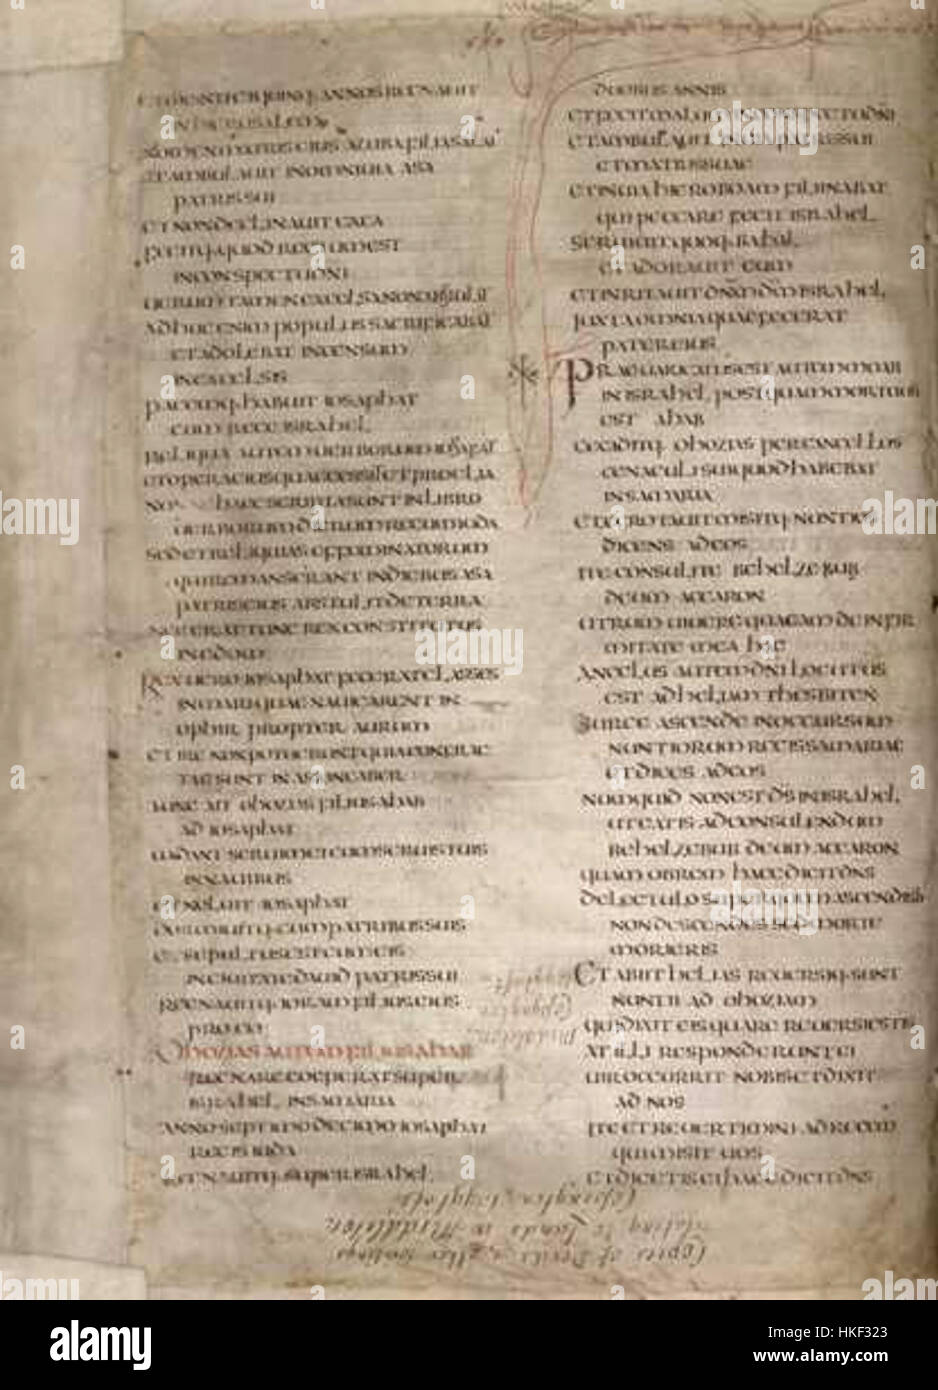 ET VIGENTI ET QUINQ· ANNOS REGNAUIT
IN HIERUSALEM
NOMEN MATRIS EIUS AZUBA FILIA SALAI
ET AMBULAUIT IN OMNI UIA ASA
PATRIS SUI
ET NON DECLINAUIT EX EA
FECITQ· QUOD RECTUM EST
IN CONSPECTU DNI
UERUM TAMEN EXCELSA NON ABSTULIT
AD HUC ENIM POPULUS SACRIFICABAT
ET ADOLEBAT INCENSUM
IN EXCELSIS
PACEMQ· HABUIT IOSAPHAT
CUM REGE ISRAHEL,
RELIQUA AUTEM UERBORUM IOSAPHAT
ET OPERA EIUS QUAE GESSIT ET PROELIA
HAEC SCRIPTA SUNT IN LIBRO
UERBORUM DIERUM REGUM IUDA
SED ET RELIQUIAS EFFOMINATORUM
QUI REMANSERANT IN DIEBUS ASA
PATRIS EIUS ABSTULIT DE TERRA
NEC ERAT TUNC REX CONSTITUTUS
IN EDOM
REX UERO IOSAPHAT FECERAT CLASSES
IN MARI QUAE NAUIGARENT IN
OPHIR PROPTER AURUM
ET IRE NON POTUERUNT QUIA CONFRAC
TAE SUNT IN ASIONGABER
TUNC AIT OHOZIAS FILIUS AHAB
AD IOSAPHAT
UADANT SERUI MEI CUM SERUIS TUIS
IN NAUIBUS
ET NOLUIT IOSAPHAT
DORMIUITQ· CUM PATRIBUS SUIS
ET SEPULTUS EST CUM EIS
IN CIUITATE DAUID PATRIS SUI
REGNAUITQ· IORAM FILIUS EIUS
PRO EO
OHOZIAS AUTEM FILIUS AHAB
REGNARE COEPERAT SUPER
ISRAHEL, IN SAMARIA
ANNO SEPTIMO DECIMO IOSAPHAT
REGIS IUDA
REGNAUITQ· SUPER ISRAHEL,
DUOBUS ANNIS
ET FECIT MALUM IN CONSPECTU DNI
ET AMBULAUIT IN UIA PATRIS SUI
ET MATRIS SUAE
ET IN UIA HIEROBOAM FILII NABAT
QUI PECCARE FECIT ISRAHEL,
SERUIUIT QUOQ· BAHAL,
ET ADORAUIT EUM
ET INRITAUIT DNM DM ISRAHEL,
JUXTA OMNIA QUAE FECERAT
PATER EIUS
PRAEUARICATUS EST AUTEM MOAB
IN ISRAHEL, POSTQUAM MORTUUS
EST AHAB
CECIDITQ· OHOZIAS PER CANCELLOS
CENACULI SUI QUOD HABEBAT
IN SAMARIA
ET EGROTAUIT MISITQ· NUNTIOS
DICENS AD EOS
ITE CONSULITE BEHELZEBUB
DEUM ACCARON
UTRUM UIUERE QUEAM DE INFIR
MITATE MEA HAC
ANGELUS AUTEM DNI LOCUTUS
EST AD HELIAM THESBITEN
SURGE ASCENDE IN OCCURSUM
NUNTIORUM REGIS SAMARIAE
ET DICES AD EOS
NUMQUID NON EST DS IN ISRAHEL,
UT EATIS AD CONSULENDUM
BEHELZEBUB DEUM ACCARON
QUAM OBREM HAEC DICIT DNS
DE LECTULO SUPER QUEM ASCENDISTI
NON DESCENDES SED MORTE
MORIERIS
ET ABIIT HELIAS REUERSIQ· SUNT
NUNTII AD OHOZIAM
QUI DIXIT EIS QUARE REUERSI ESTIS
AT ILLI RESPONDERUNT EI
UIR OCCURRIT NOBIS ET DIXIT
AD NOS
ITE ET REUERTIMINI AD REGEM
QUI MISIT UOS
ET DICETIS EI HAEC DICIT DNS
Copies of Deeds &
relating to Lands in Middleton
alamy
Image ID: HKF323
www.alamy.com